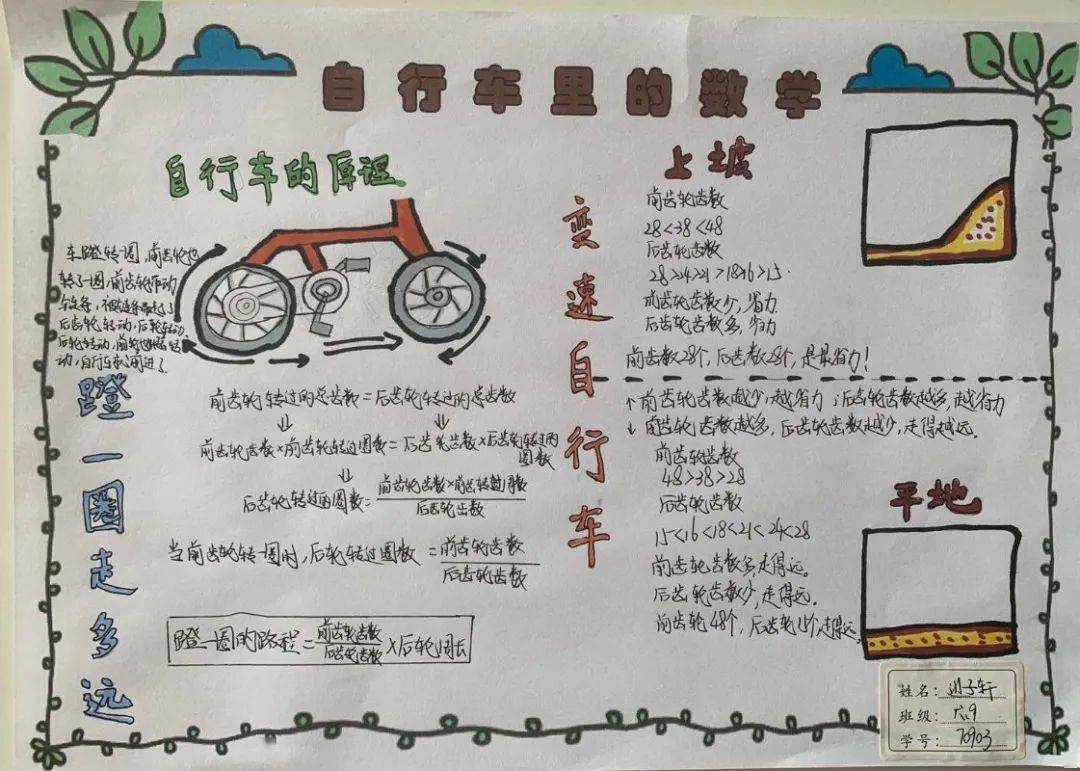 自行车里的数学
自行车的原理
车蹬转一圈,前齿轮也
转了一圈,前齿轮带动
后齿轮转动,后轮转动
自行车就前进了
蹬一圈走多远
前齿轮转过的总齿数=后齿轮转过的总齿数
前齿轮齿数×前齿轮转过圈数=后齿轮齿数×后齿轮转过的圈数
后齿轮转过的圈数=前齿轮齿数×前齿轮转过圈数/后齿轮齿数
当前齿轮转一圈时,后轮转过圈数=前齿轮齿数/后齿轮齿数
蹬一圈的路程=前齿轮齿数/后齿轮齿数×后轮周长
变速自行车
上坡
前齿轮齿数
28<38<48
后齿轮齿数
28>24>21>18>16>15
前齿轮齿数少,省力
后齿轮齿数多,省力
前齿数28个,后齿数28个,是最省力!
↑前齿轮齿数越少,越省力;后齿轮齿数越多,越省力
↓前齿轮齿数越多,后齿轮齿数越少,走得越远。
前齿轮齿数
48>38>28
后齿轮齿数
15<16<18<21<24<28
前齿轮齿数多,走得远。
后齿轮齿数少,走得远。
前齿轮48个,后齿轮15个,走得远。
平地
姓名:子轩
班级:六.9
学号:70903